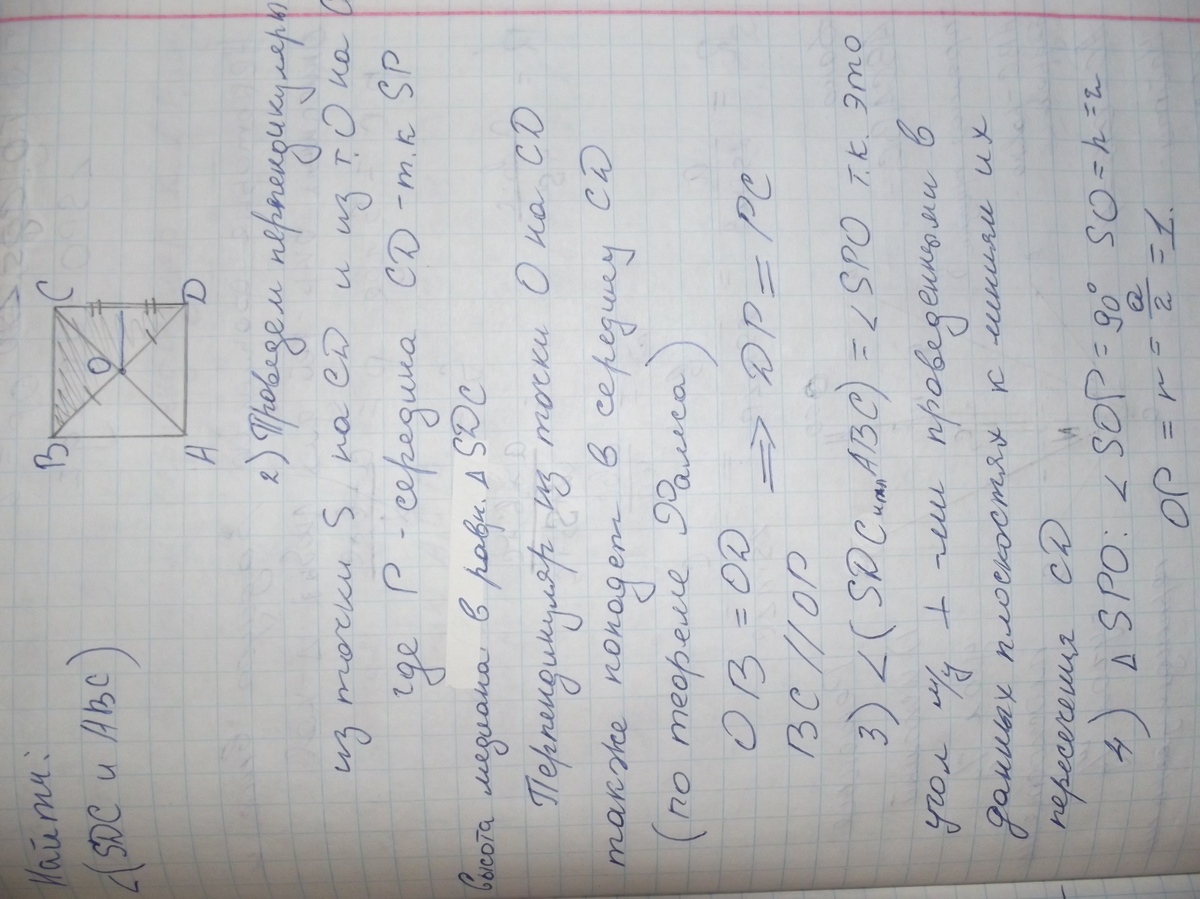 Найти:
∠(SDC и ABC)
B
C
O
A
D
2) Проведем перпендикуляры
из точки S на CD и из т. O на C
где P - середина CD - т.к SP
высота медиана в равн. Δ SDC
Перпендикуляр из точки O на CD
также попадет в середину CD
(по теореме Фалеса)
OB = OD
BC // OP ⟹ DP = PC
3) ∠(SDC и пл ABC) = ∠ SPO т.к. это
угол м/у ⊥ -ми проведенными в
данных плоскостях к линиям их
пересечения CD
4) Δ SPO: ∠ SOP = 90° SO = h = 2
OP = r = a/2 = 1.